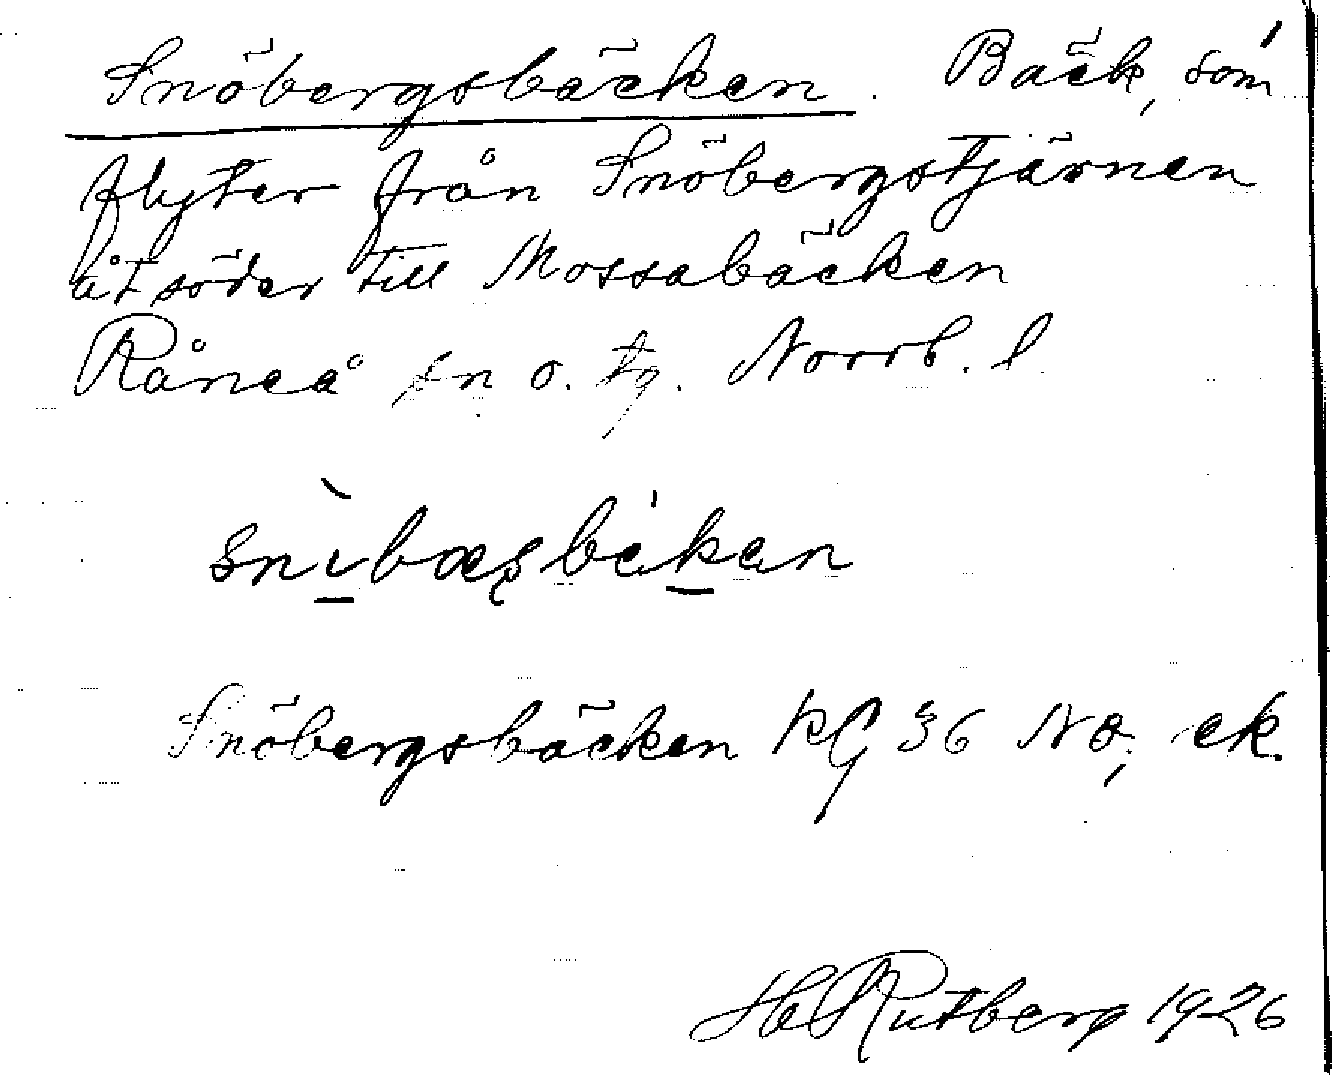 Snöbergsbäcken. Bäck, som
flyter från Snöbergstjärnen
åt söder till Mossabäcken
Råneå sn o. tg. Norrb. l.
Snöbergsbäcken KG 36 NO, ek.
H Rutberg 1926